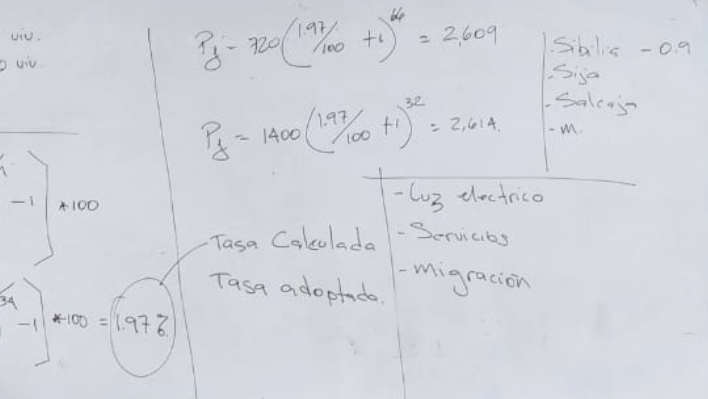 viv.
viv.
-1] *100
-1] *100 = 1.97%
Pf = 720(1.97/100 +1)^66 = 2,609
Pf = 1400(1.97/100 +1)^32 = 2,614.
Tasa Calculada
Tasa adoptado.
. Sibilia - 0.9
- Sija
- Salcaja
- m.
- Luz electrico
- Servicios
- migración